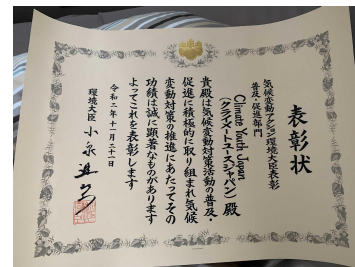 表彰状
気候変動アクション環境大臣表彰
普及・促進部門
Climate Youth Japan
(クライメート・ユース・ジャパン) 殿
貴殿は気候変動対策活動の普及・
促進に積極的に取り組まれ気候
変動対策の推進にあたってその
功績は誠に顕著なものがあります
よってこれを表彰します
令和二年十二月二十一日
環境大臣 小泉進次郎